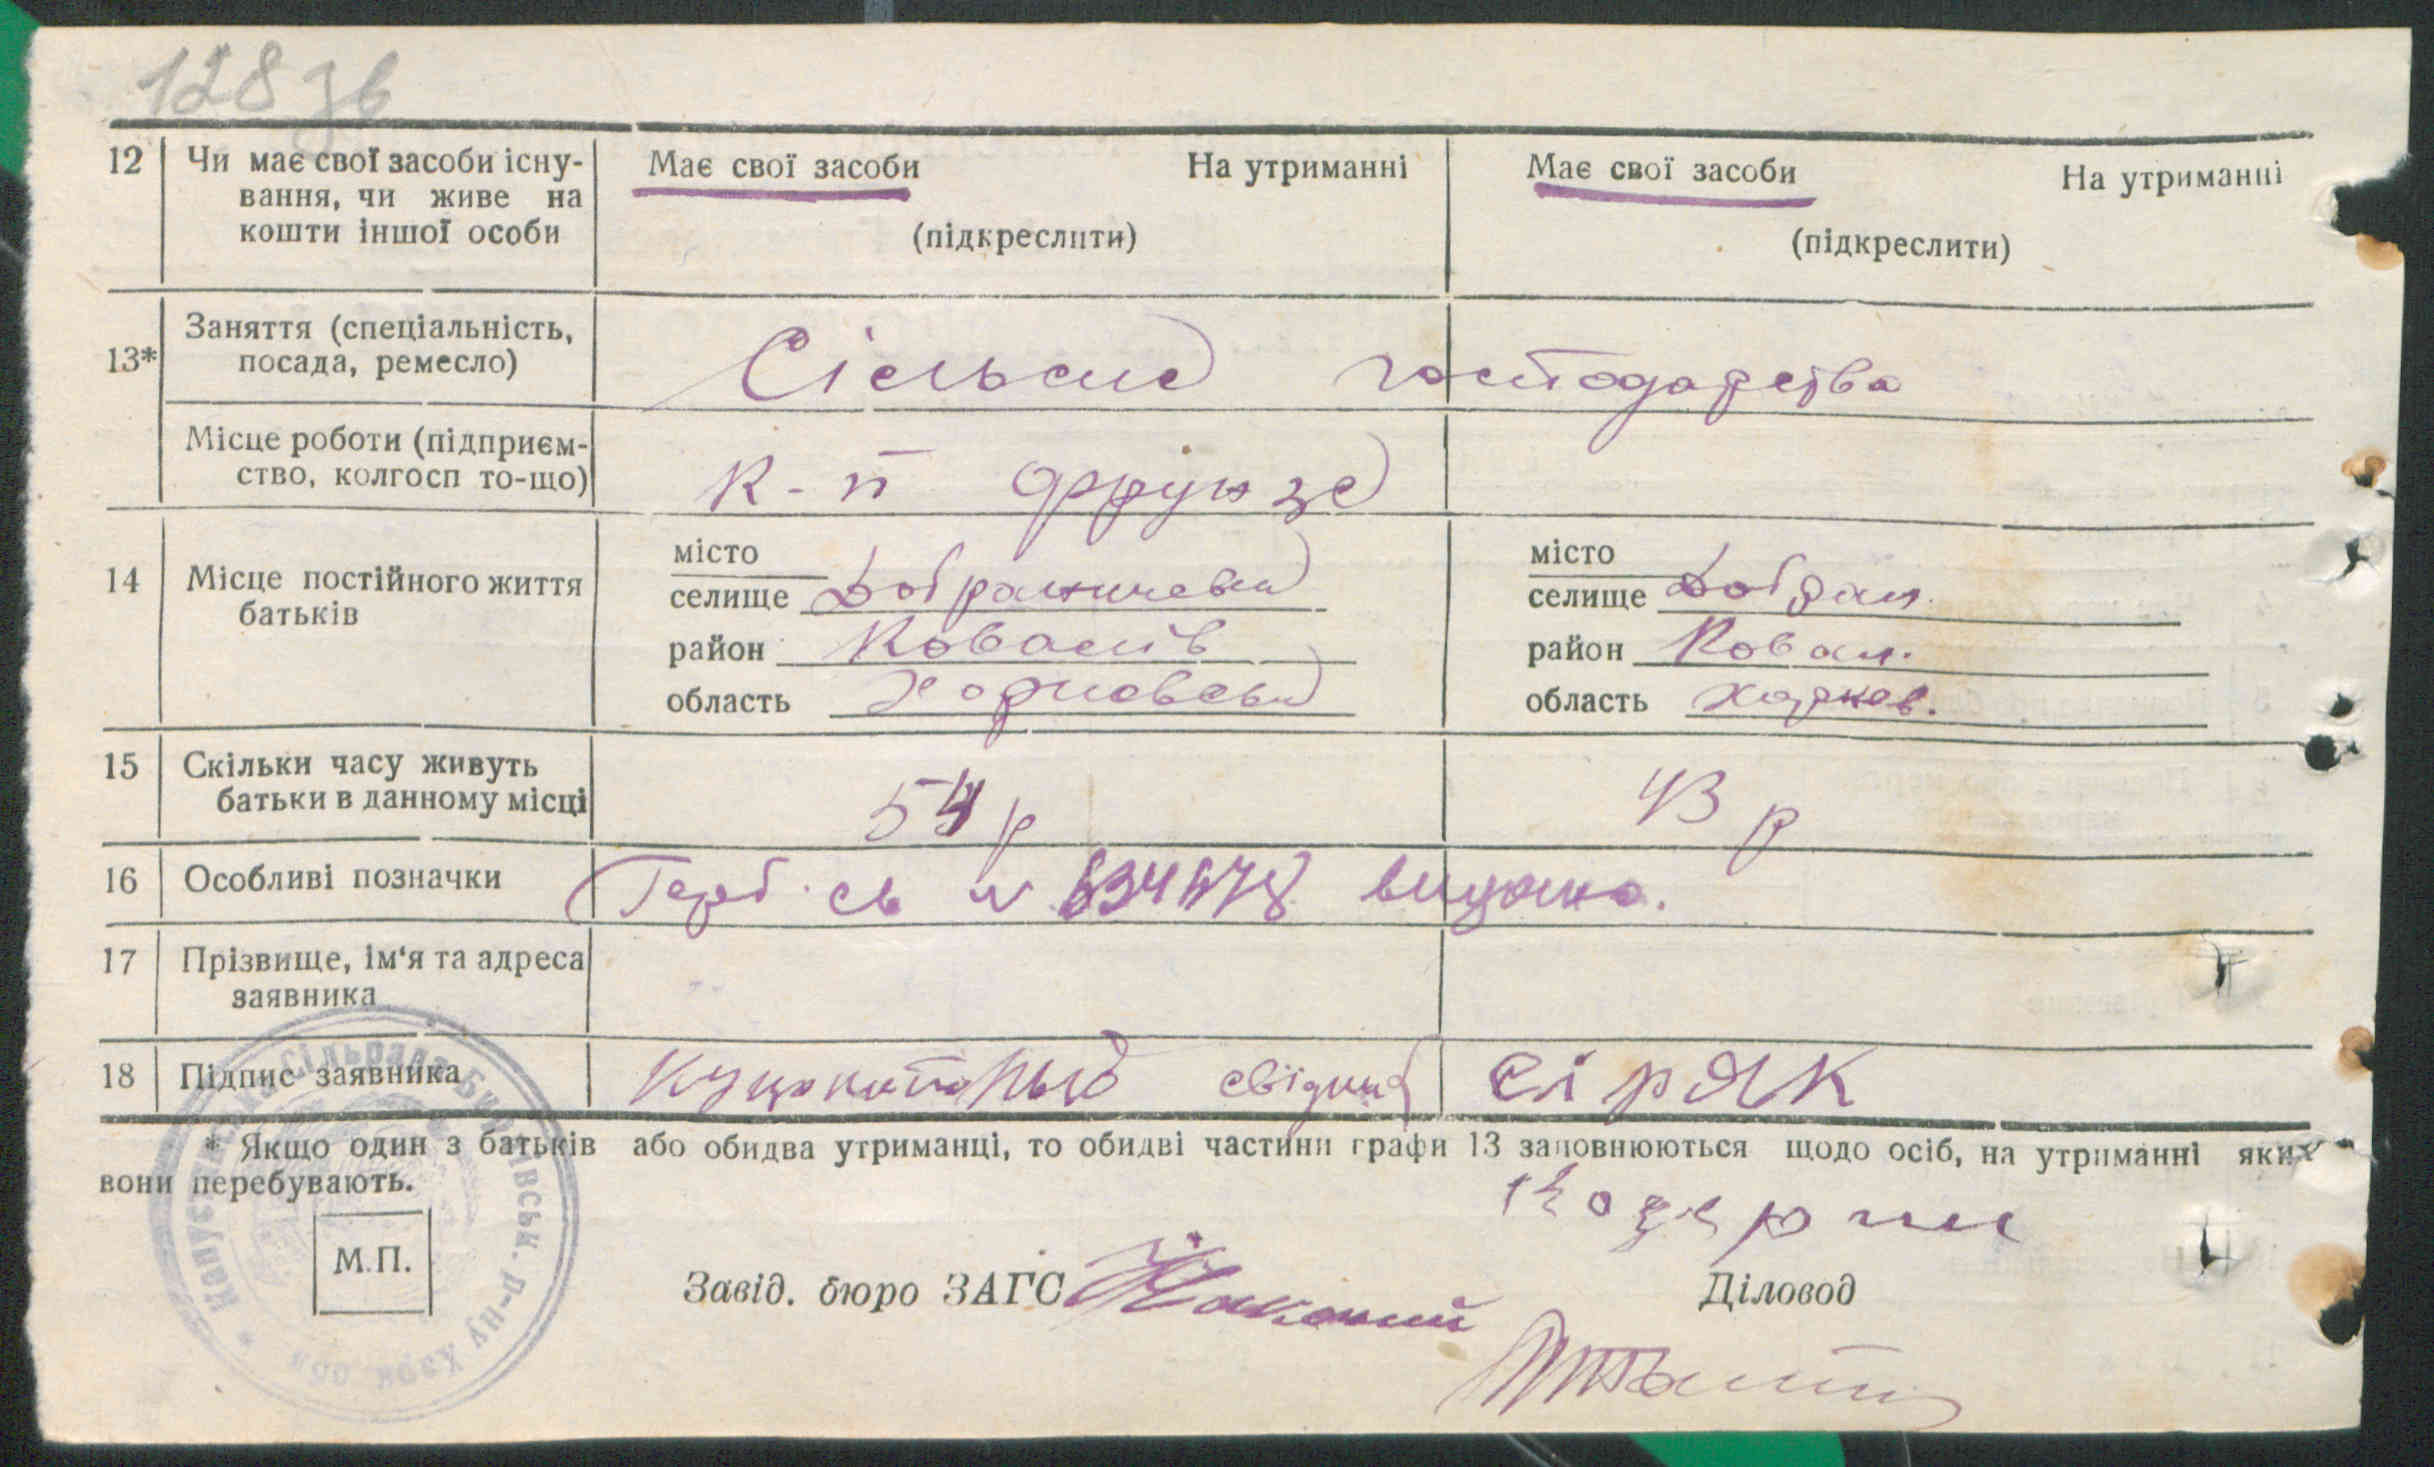 128 зв
12 Чи має свої засоби існу- Має свої засоби На утриманні Має свої засоби На утриманні
вання, чи живе на
кошти іншої особи (підкреслити) (підкреслити)
13* Заняття (спеціальність,
посада, ремесло) Сільське господарства
Місце роботи (підприєм-
ство, колгосп то-що) К-п Фрунзе
місто місто
14 Місце постійного життя селище селище
батьків район Ковалів район Ковал.
область Харковськ область Харков.
15 Скільки часу живуть
батьки в данному місці 54 р 43 р
16 Особливі позначки Герб. св № видано.
17 Прізвище, ім‘я та адреса
заявника
18 Підпис заявника свідки Сіряк
* Якщо один з батьків або обидва утриманці, то обидві частини графи 13 заповнюються щодо осіб, на утриманні яких
вони перебувають.
М.П.
Завід. бюро ЗАГС Діловод